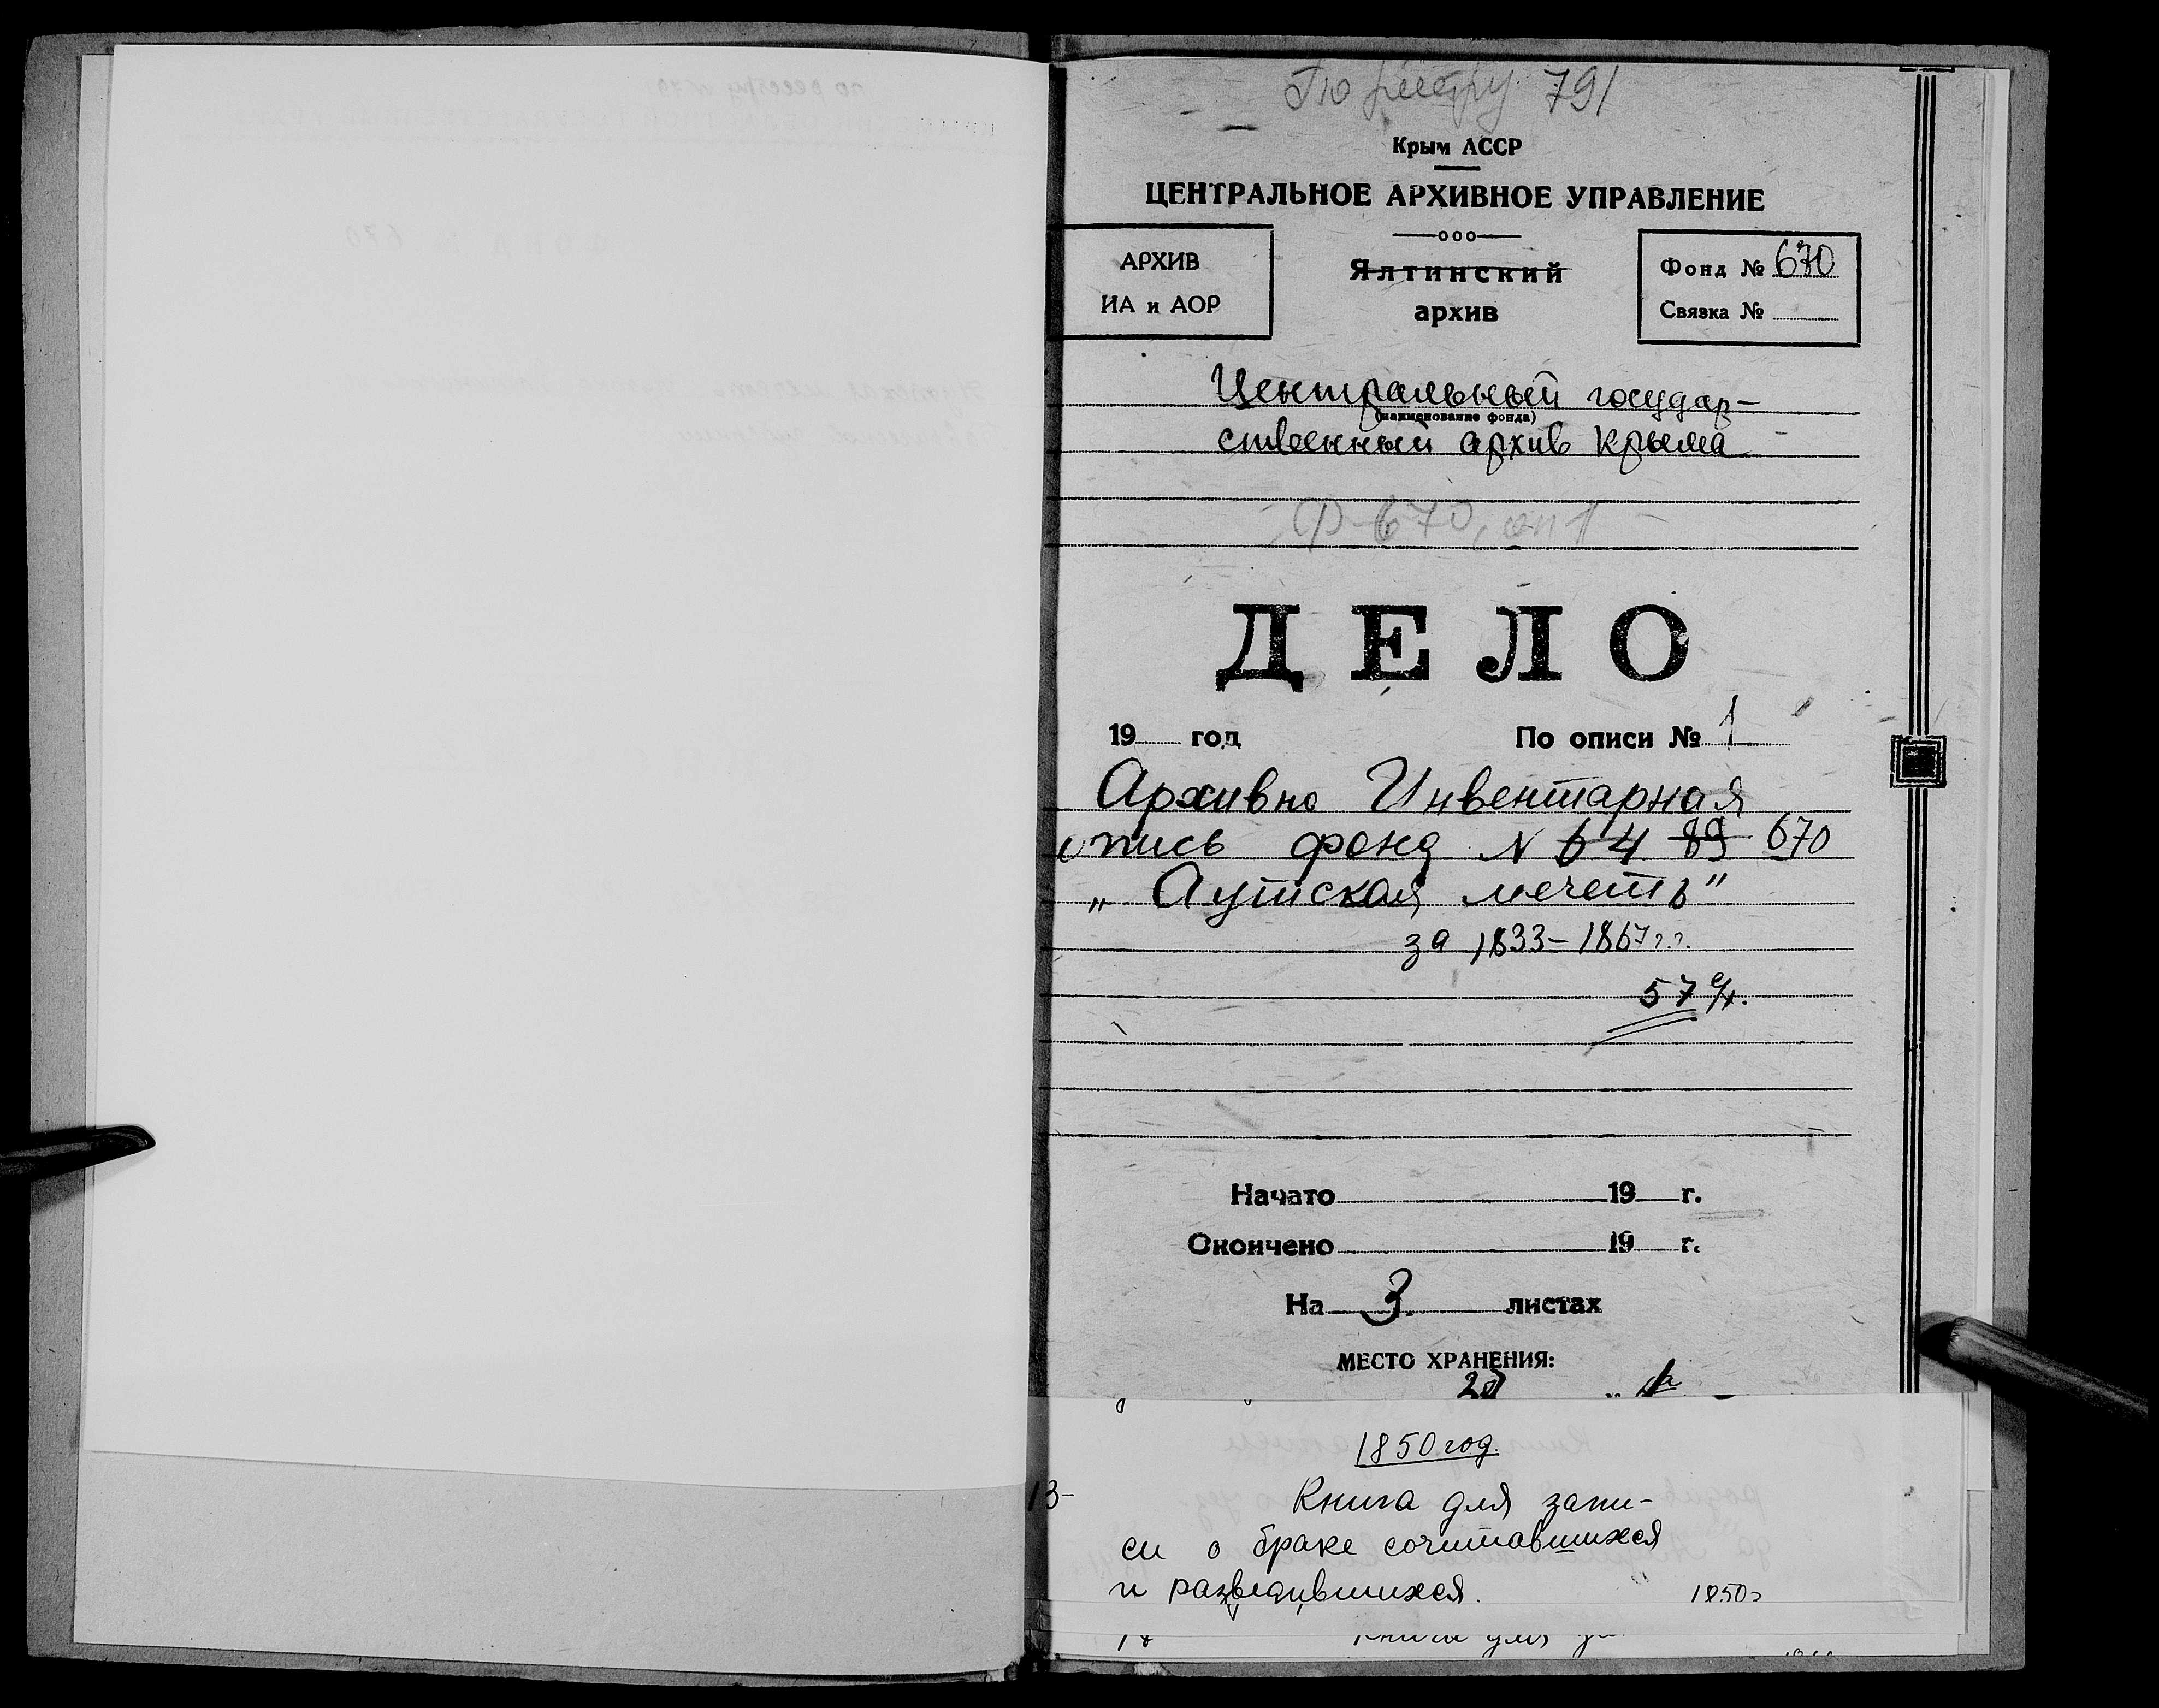 По реестру 791
Крым АССР
ЦЕНТРАЛЬНОЕ АРХИВНОЕ УПРАВЛЕНИЕ
АРХИВ
ИА и АОР
Ялтинский
архив
Фонд № 670
Связка №
Центральный государ-
(наименование фонда)
ственный архив Крыма
Ф-670, оп 1
ДЕЛО
19 год
По описи № 1
Архивно Инвентарная
опись фонд N 64 89 670
„Аутская мечеть"
за 1833-1867 г.г.
57
Начато 19 г.
Окончено 19 г.
На 3. листах
МЕСТО ХРАНЕНИЯ:
1850 год.
13-
Книга для запи-
си о браке сочитавшихся
и разведившихся. 1850г